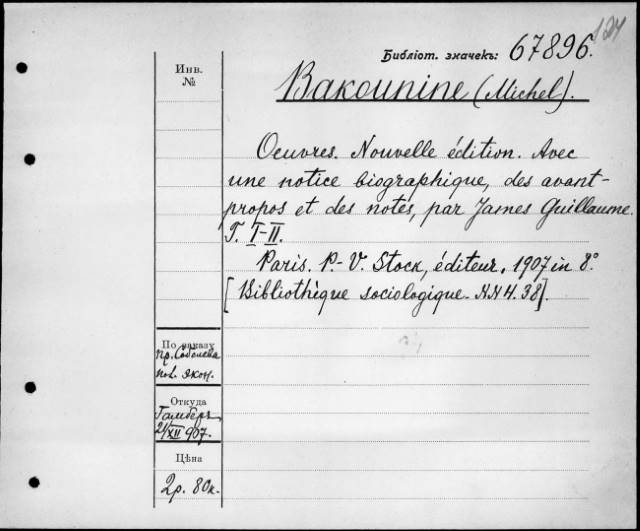 124
Библіот. значекъ: 67896.
Инв.
№
Bakounine (Michel).
Oeuvres. Nouvelle édition. Avec
une notice biographique, des avant-
propos et des notes, par James Guillaume.
T. I-II.
Paris. P.-V. Stock, éditeur, 1907 in 8°
[Bibliothèque sociologique. NN 4. 38].
По заказу
пр. Соболева
пол. экон.
Откуда
Гамберъ
21/XII 907.
Цѣна
2р. 80к.